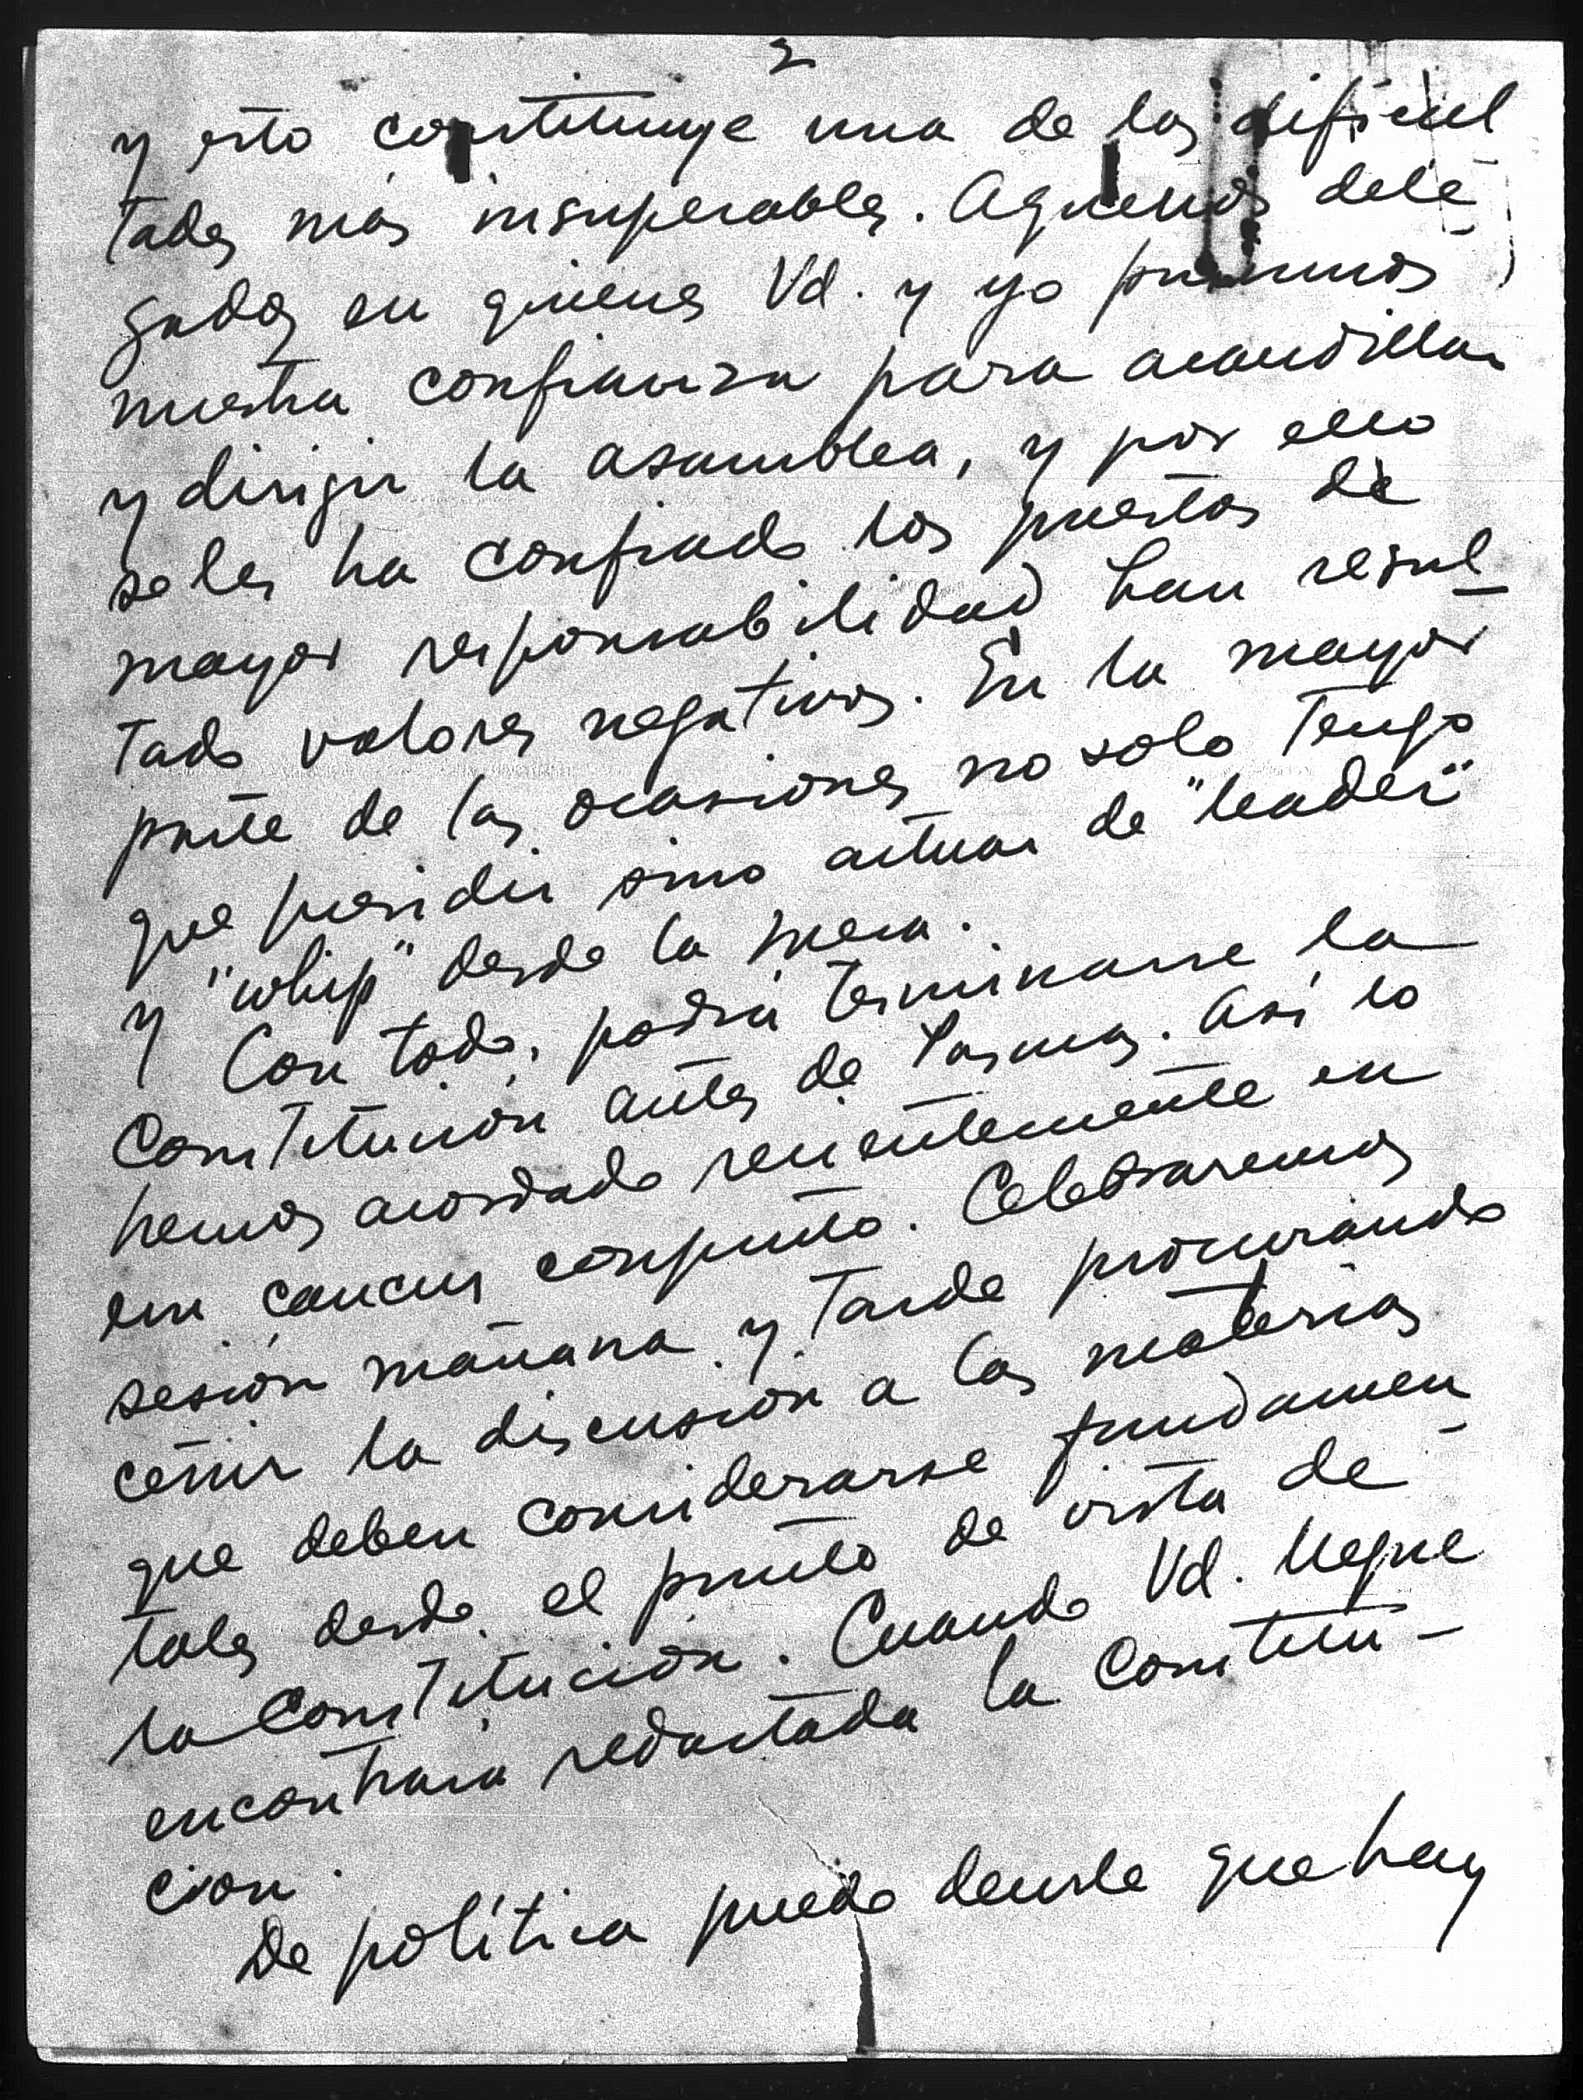 2
y esto constituye una de las dificul
tades más insuperables. Aquellos dele-
gados en quienes Vd. y yo pusimos
nuestra confianza para acaudillar
y dirigir la asamblea, y por ello
se les ha confiado los puestos de
mayor responsabilidad han resul-
tado valores negativos. En la mayor
parte de las ocasiones no solo tengo
que presidir sino actuar de "leader"
y "whip" desde la mesa.
Con todo, podrá terminarse la
Constitución antes de Pascuas. Así lo
hemos acordado recientemente en
un caucus conjunto. Celebraremos
sesión mañana y tarde procurando
ceñir la discusión a las materias
que deben considerarse fundamen-
tales desde el punto de vista de
la Constitución. Cuando Vd. llegue
encontrará redactada la Constitu-
ción.
De política puedo decirle que hay